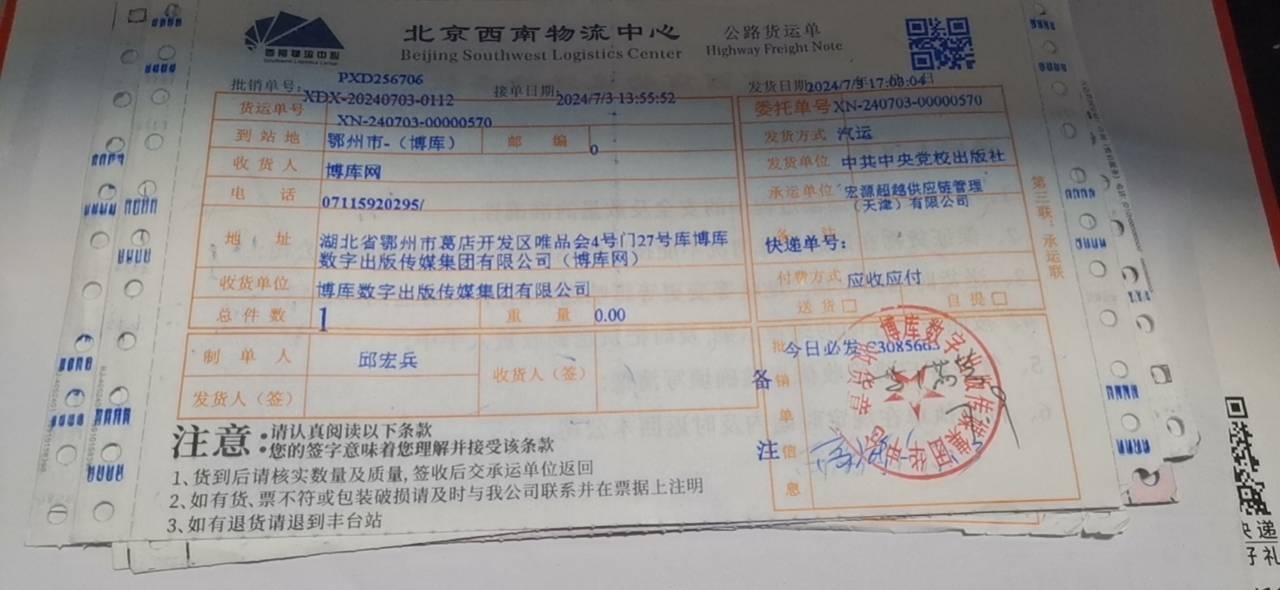 西南物流中心
Southwest Logistics Center
北京西南物流中心
Beijing Southwest Logistics Center
公路货运单
Highway Freight Note
批销单号: PXD256706
接单日期: 2024/7/3 13:55:52
发货日期 2024/7/3 17:03:04 日
货运单号 XDX-20240703-0112
XN-240703-00000570
委托单号 XN-240703-00000570
到站地 鄂州市-（博库） 邮编 0
发货方式 汽运
收货人 博库网
发货单位 中共中央党校出版社
电话 07115920295/
承运单位 宏源超越供应链管理
（天津）有限公司
地址 湖北省鄂州市葛店开发区唯品会4号门27号库博库
数字出版传媒集团有限公司（博库网）
快递单号：
收货单位 博库数字出版传媒集团有限公司
付费方式 应收应付
总件数 1 重量 0.00
送货 自提
制单人 邱宏兵 收货人（签）
发货人（签）
备注
批销单信息
今日必发
博库数字出版传媒集团
第三联：承运联
注意:
请认真阅读以下条款
您的签字意味着您理解并接受该条款
1、货到后请核实数量及质量,签收后交承运单位返回
2、如有货、票不符或包装破损请及时与我公司联系并在票据上注明
3、如有退货请退到丰台站
递
子礼